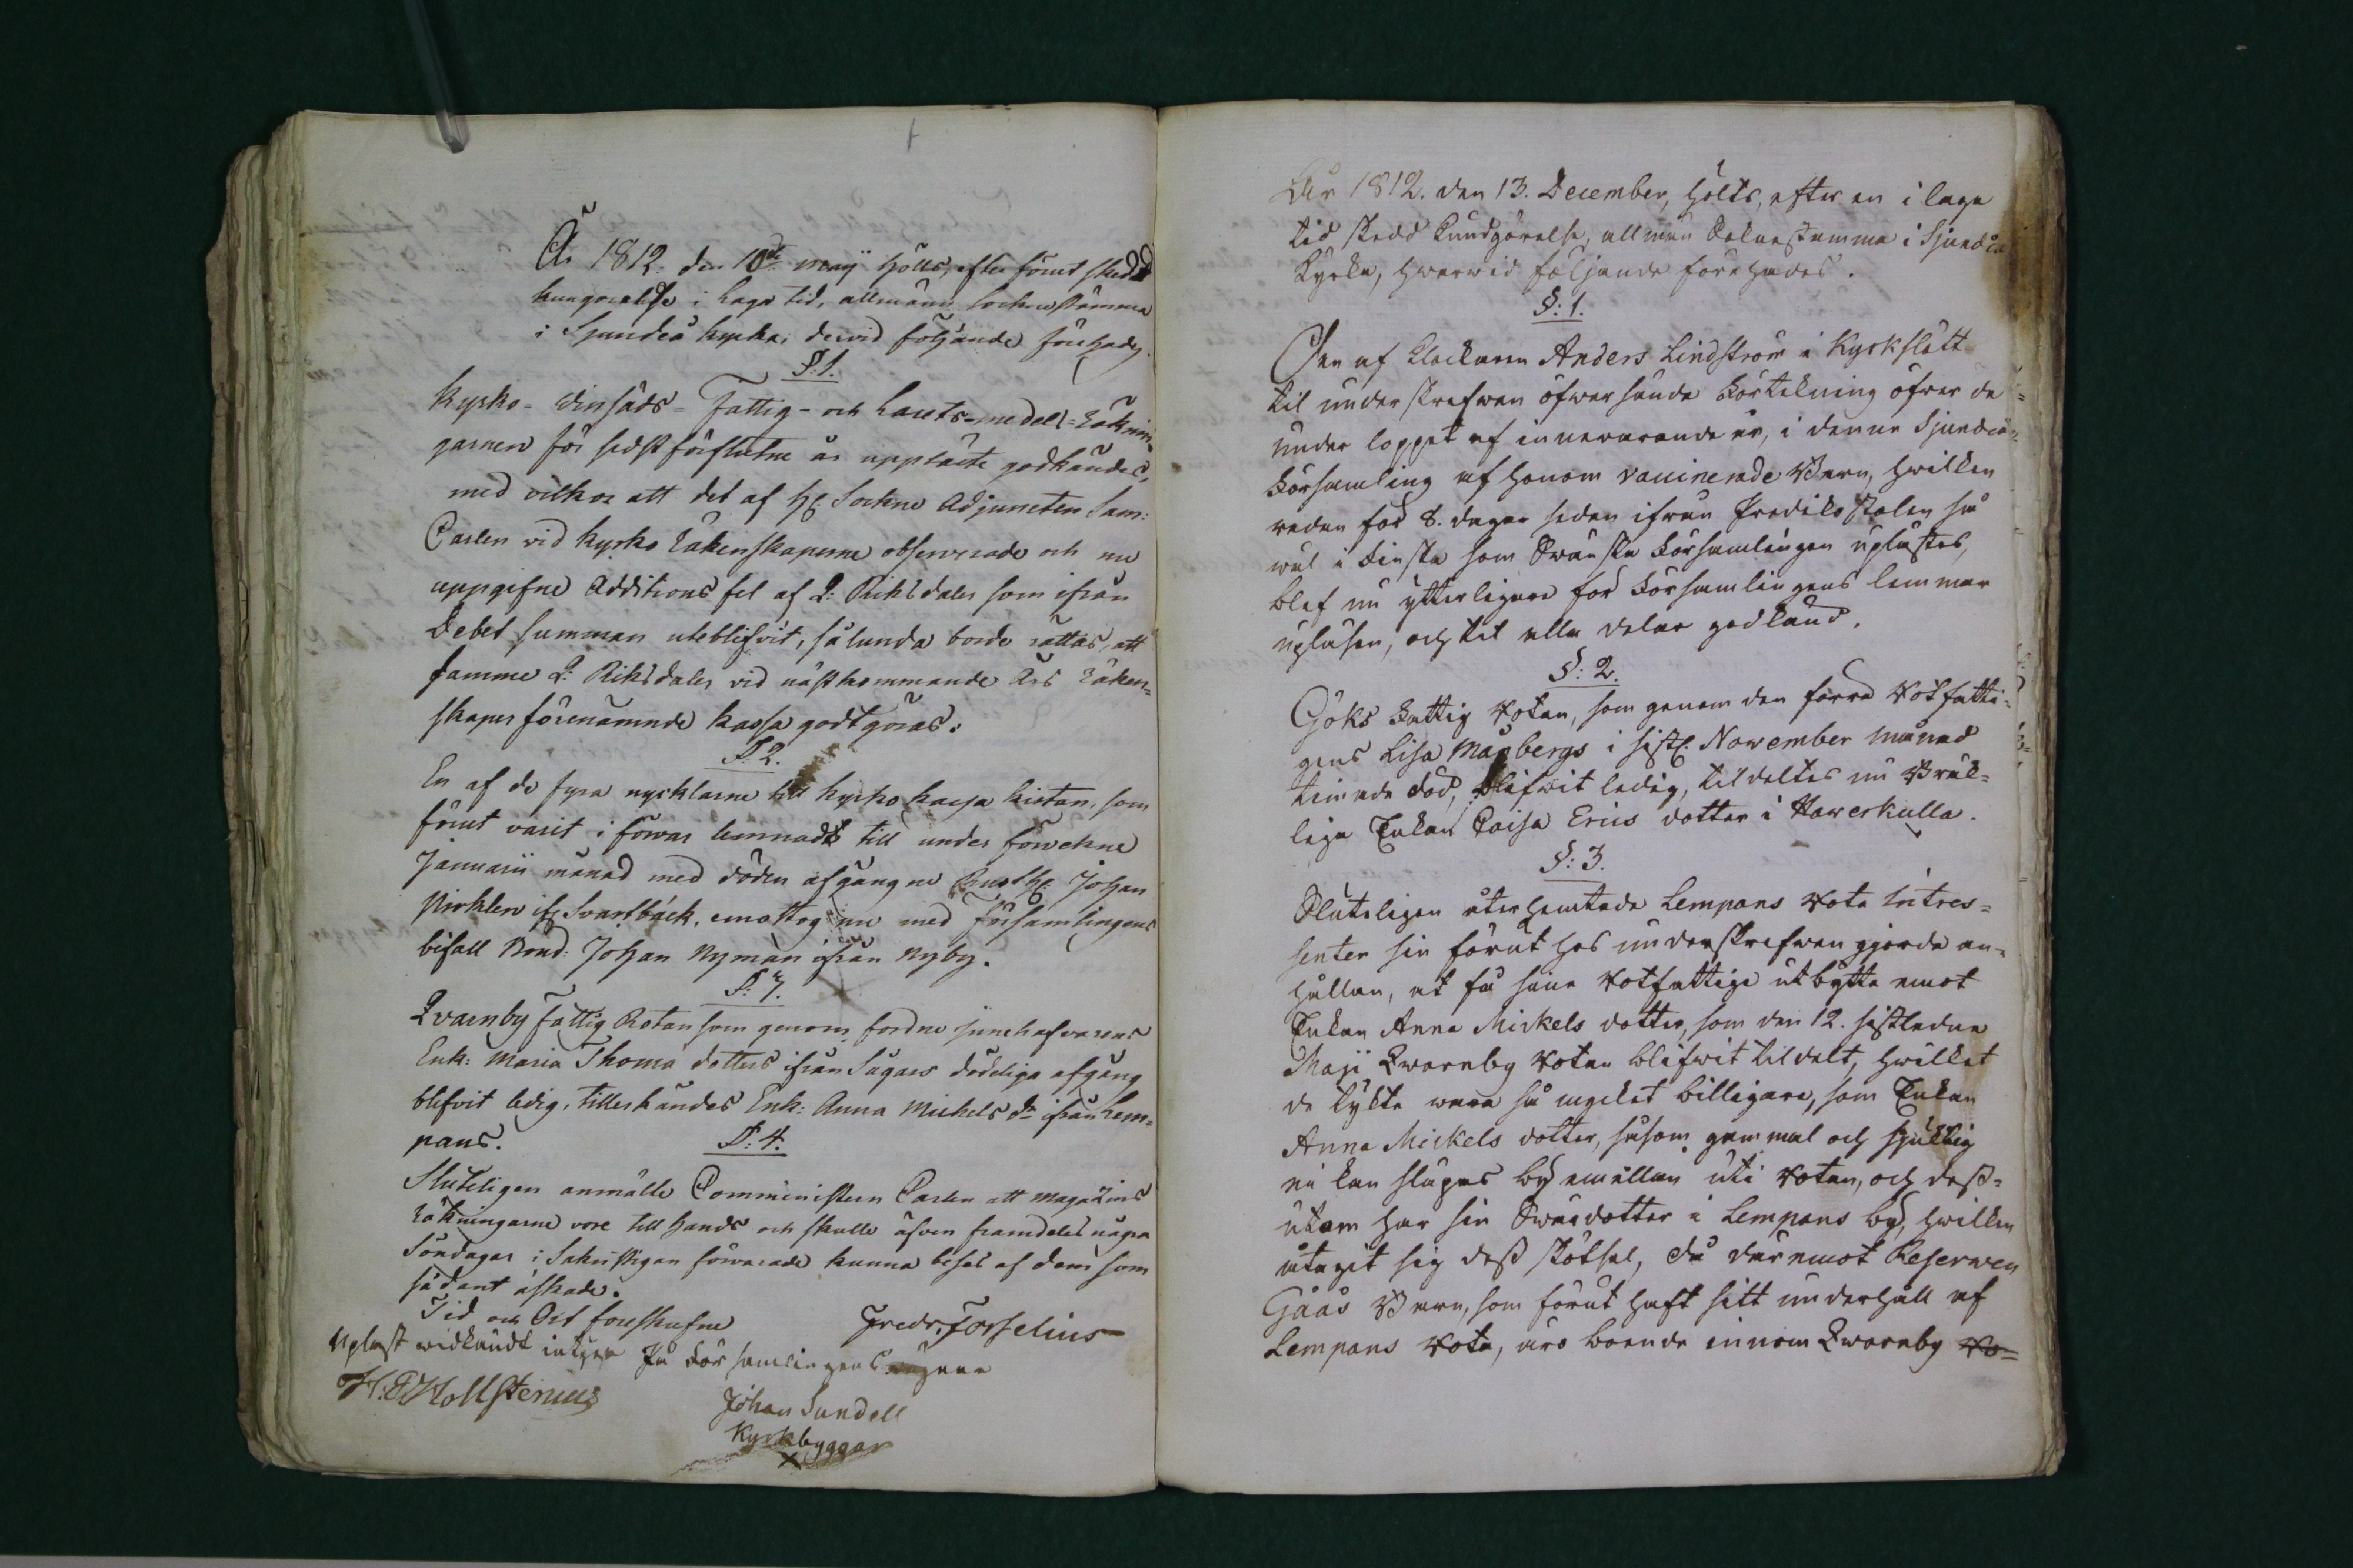 År 1812. den 10de maij hölls, efter förut skedd
kungörelse i Laga tid, allmänn Sockne stämma
i Sjundeå kyrka, dervid följande förehades.
§. 1.
Kyrko- Vinsäds- Fattig- och Lasaretts-medels-Räknin-
garnen för sidst förflutne år upplästs godkändes,
med vilkor att det af H: Sockne Adjuncten Sam:
Carlen vid kyrko Räkenskaperne observerade och nu
uppgifne Additions fel af 2: Riksdaler som ifrån
Debet summan uteblifvit, sålunda borde rättas, att
samme 2: Riksdaler vid nästkommande Års Räken-
skaper förenämnde kassa godtgöras.
§. 2.
En af de fyra nycklarne till kyrko kassa kistan, som
förut varit i förvar lemnadt till under förvekne
Januarii månad med döden afgångne Rusth: Johan
ifr Svartbäck, emottog nu med Församlingens
bifall Bond: Johan Nyman ifrån Nyby.
§. 3.
Qvarnby Fattig Rotan som genom fordne innehafvarens
Enk: Maria Thomæ dotters ifrån Sågars dödeliga afgång
blifvit ledig, tillerkändes Enk: Anna Michels dr ifrån Lem-
pans. §. 4.
Sluteligen anmälte Comministern Carlen att Magazins
Räkningarne vore till hands och skulle äfven framdeles några
Söndagar i Sakristigan förvarade kunna beses af dem som
sådant åskade.
Tid och Ort föreskrefne Fredr. Forselius
Upläst widkändt intyga På Församlingens wägnar
H. Hollstenius
Johan Sundell
Kyrkbyggar
X
År 1812. den 13. December, hölts, efter en i laga
tid skedd Kundgörelse, allmän Sokne stämma i Sjundeå
Kyrka, hwarwid följande förehades.
§. 1.
Den af Klockaren Anders Lindström i Kyrkslätt
til underskrefwen öfwersände Förtekning öfwer de
under loppet af innewarande år, i denne Sjundeå
Församling af honom vaccinerade Barn, hwilken
redan för 8. dagar sedan ifrån Predikostolen så
wäl i Finska som Swenska Församlingen uplästes,
blef nu ytterligare för Församlingens lemmar
upläsen, och til alla delar godkänd.
§: 2.
Göks Fattig Rotan, som genom den förra Rotfatti-
gens Lisa Magbergs i sistl: November månad
timade död, blifwit ledig, tildeltes nu Bräk-
liga Enkan Caisa Erics dotter i Hawerkulla.
§: 3.
Sluteligen återhemtade Lempans Rote Intres-
senter sin förut hos underskrefwen gjorde an-
hållan, at få sine Rotfattige utbytte emot
Enkan Anna Mickels dotter, som den 12. sistledne
Maji Qwarnby Rotan blifwit tildelt, hwilket
de tykte wara så mycket billigare, som Enkan
Anna Mickels dotter, såsom gammal och sjuklig
ei kan släpas by emellan uti Rotan, och dess-
utom har sin Swärdotter i Lempans by, hwilken
åtagit sig dess skötsel, då däremot Reserven
Gåås Barn, som förut haft sitt underhåll af
Lempans Rote, äro boende innom Qwarnby Ro-